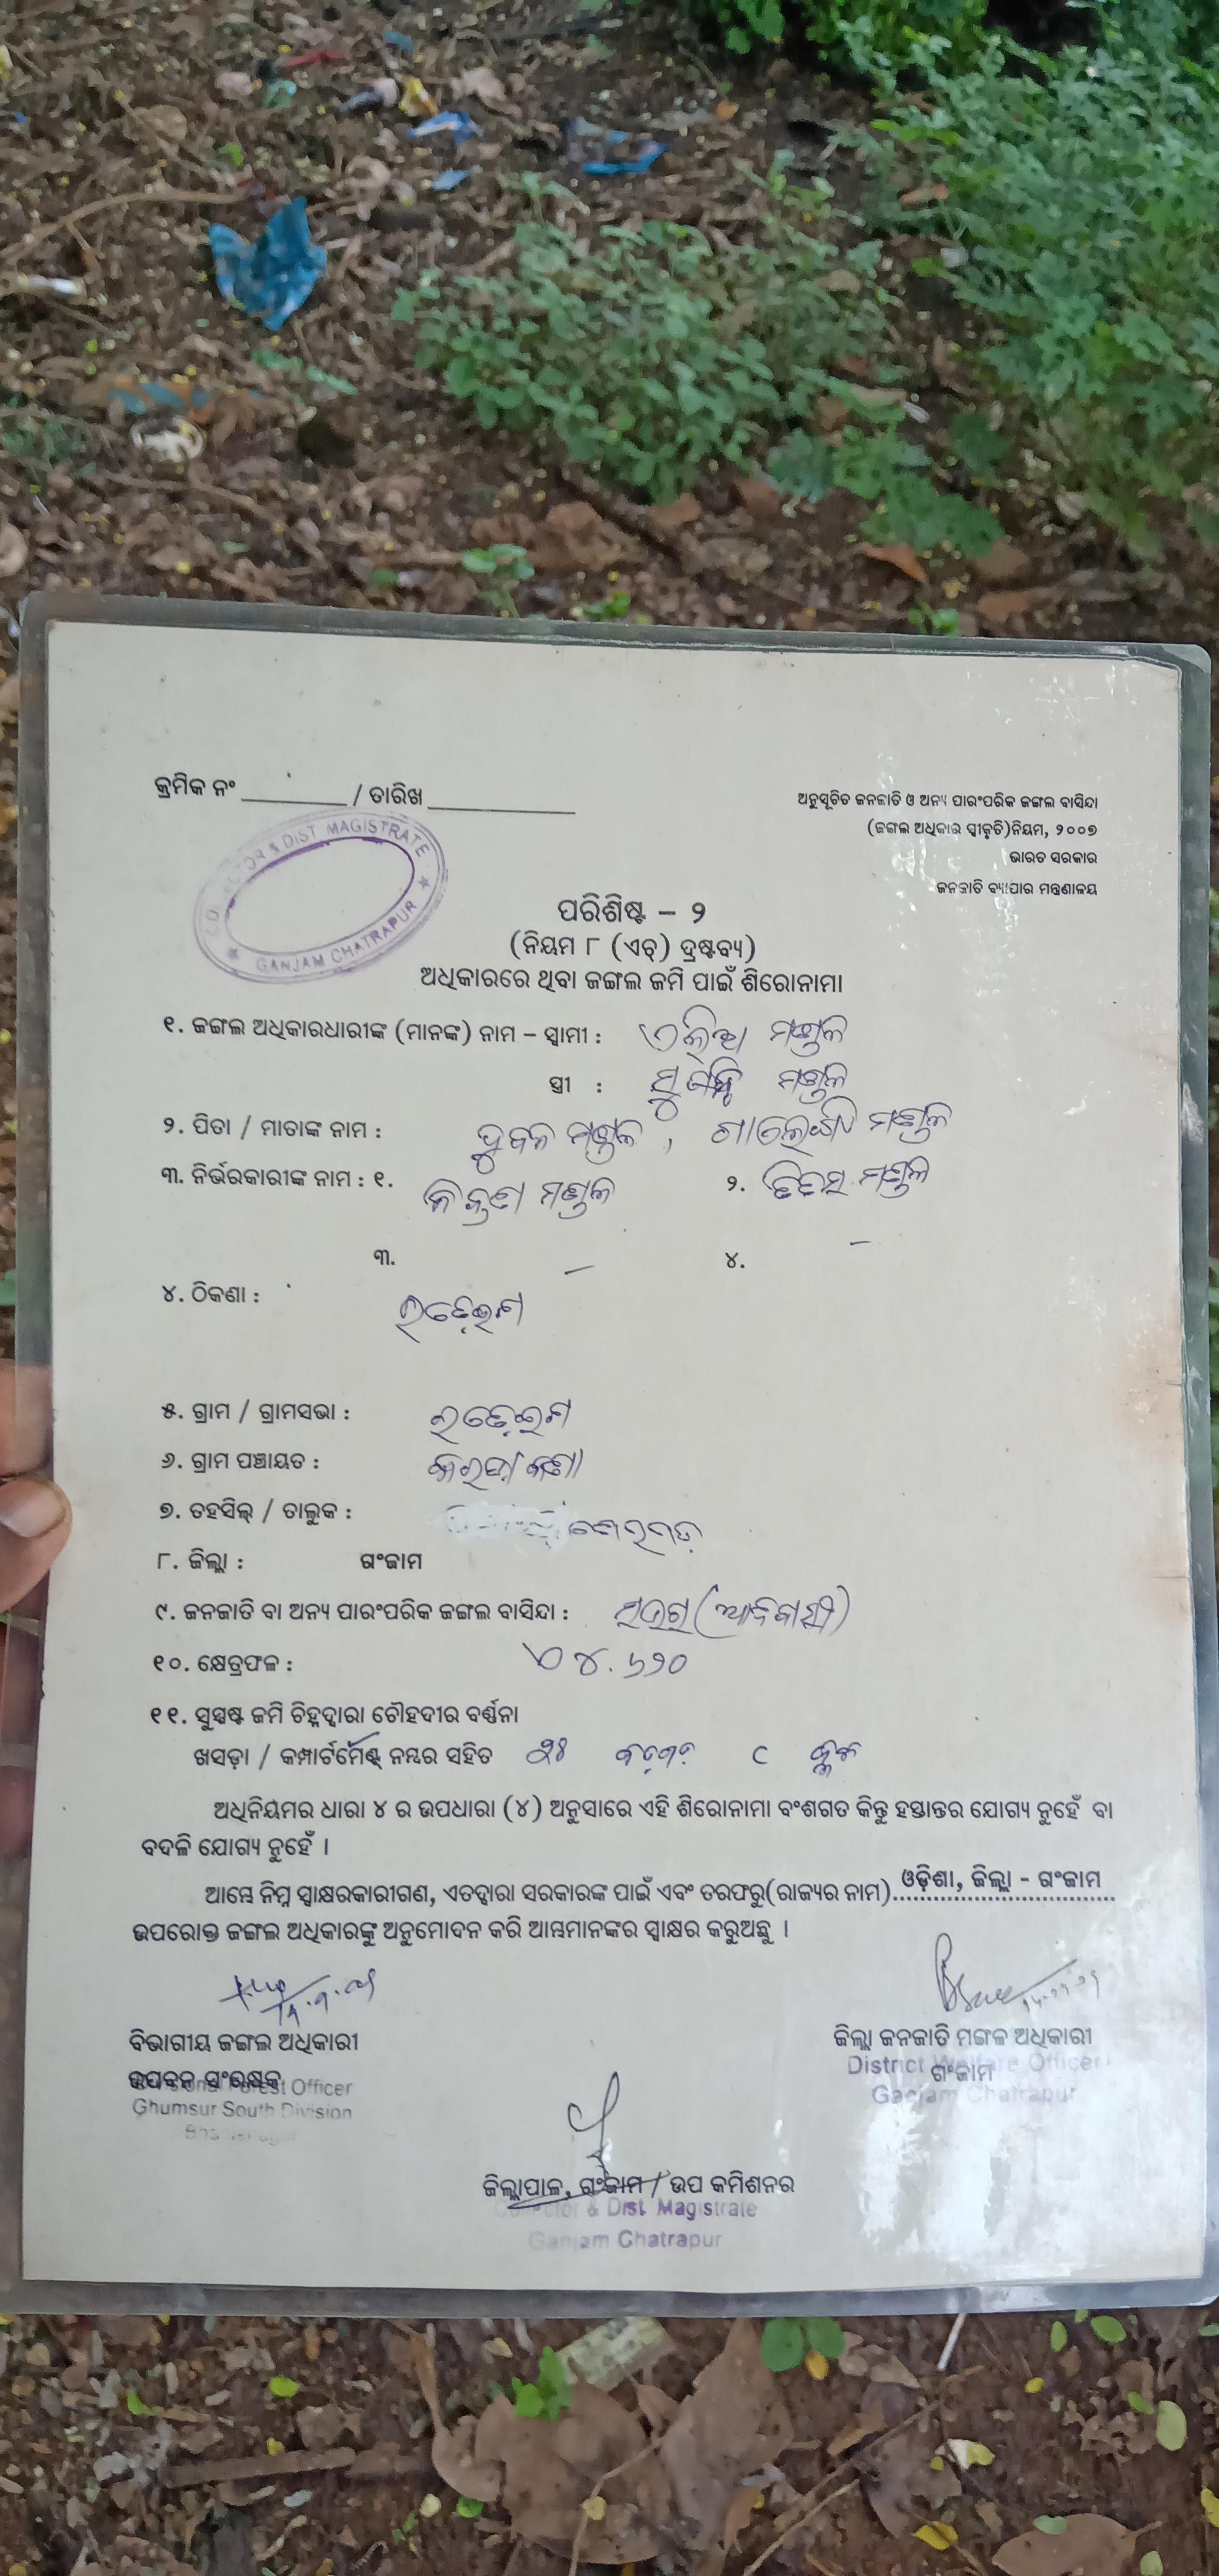 କ୍ରମିକ ନଂ ________ / ତାରିଖ ____________
ଅନୁସୂଚିତ ଜନଜାତି ଓ ଅନ୍ୟ ପାରଂପରିକ ଜଙ୍ଗଲ ବାସିନ୍ଦା
(ଜଙ୍ଗଲ ଅଧିକାର ସ୍ୱୀକୃତି)ନିୟମ, ୨୦୦୭
ଭାରତ ସରକାର
ଜନଜାତି ବ୍ୟାପାର ମନ୍ତ୍ରଣାଳୟ
COLLECTOR & DIST MAGISTRATE
★ GANJAM CHATRAPUR ★
ପରିଶିଷ୍ଟ – ୨
(ନିୟମ ୮ (ଏଚ୍) ଦ୍ରଷ୍ଟବ୍ୟ)
ଅଧିକାରରେ ଥିବା ଜଙ୍ଗଲ ଜମି ପାଇଁ ଶିରୋନାମା
୧. ଜଙ୍ଗଲ ଅଧିକାରଧାରୀଙ୍କ (ମାନଙ୍କ) ନାମ – ସ୍ୱାମୀ : ମଣ୍ଡଳ
ସ୍ତ୍ରୀ : ମଣ୍ଡଳ
୨. ପିତା / ମାତାଙ୍କ ନାମ : ମଣ୍ଡଳ , ମଣ୍ଡଳ
୩. ନିର୍ଭରକାରୀଙ୍କ ନାମ : ୧. ମଣ୍ଡଳ ୨. ମଣ୍ଡଳ
୩. – ୪. –
୪. ଠିକଣା :
୫. ଗ୍ରାମ / ଗ୍ରାମସଭା :
୬. ଗ୍ରାମ ପଞ୍ଚାୟତ :
୭. ତହସିଲ୍ / ତାଲୁକ :
୮. ଜିଲ୍ଲା : ଗଂଜାମ
୯. ଜନଜାତି ବା ଅନ୍ୟ ପାରଂପରିକ ଜଙ୍ଗଲ ବାସିନ୍ଦା : (ଆଦିବାସୀ)
୧୦. କ୍ଷେତ୍ରଫଳ : ୪.୬୨୦
୧୧. ସୁସ୍ପଷ୍ଟ ଜମି ଚିହ୍ନଦ୍ୱାରା ଚୌହଦୀର ବର୍ଣ୍ଣନା
ଖସଡ଼ା / କମ୍ପାର୍ଟମେଣ୍ଟ ନମ୍ବର ସହିତ
ଅଧିନିୟମର ଧାରା ୪ ର ଉପଧାରା (୪) ଅନୁସାରେ ଏହି ଶିରୋନାମା ବଂଶଗତ କିନ୍ତୁ ହସ୍ତାନ୍ତର ଯୋଗ୍ୟ ନୁହେଁ ବା
ବଦଳି ଯୋଗ୍ୟ ନୁହେଁ ।
ଆମ୍ଭେ ନିମ୍ନ ସ୍ୱାକ୍ଷରକାରୀଗଣ, ଏତଦ୍ଦ୍ୱାରା ସରକାରଙ୍କ ପାଇଁ ଏବଂ ତରଫରୁ(ରାଜ୍ୟର ନାମ) ଓଡ଼ିଶା, ଜିଲ୍ଲା - ଗଂଜାମ
ଉପରୋକ୍ତ ଜଙ୍ଗଲ ଅଧିକାରଙ୍କୁ ଅନୁମୋଦନ କରି ଆମ୍ଭମାନଙ୍କର ସ୍ୱାକ୍ଷର କରୁଅଛୁ ।
ବିଭାଗୀୟ ଜଙ୍ଗଲ ଅଧିକାରୀ
ଉପବନ ସଂରକ୍ଷକ
Forest Officer
Ghumsur South Division
ଜିଲ୍ଲା ଜନଜାତି ମଙ୍ଗଳ ଅଧିକାରୀ
ଗଂଜାମ
District Welfare Officer
Ganjam Chatrapur
ଜିଲ୍ଲାପାଳ, ଗଂଜାମ / ଉପ କମିଶନର
Collector & Dist. Magistrate
Ganjam Chatrapur